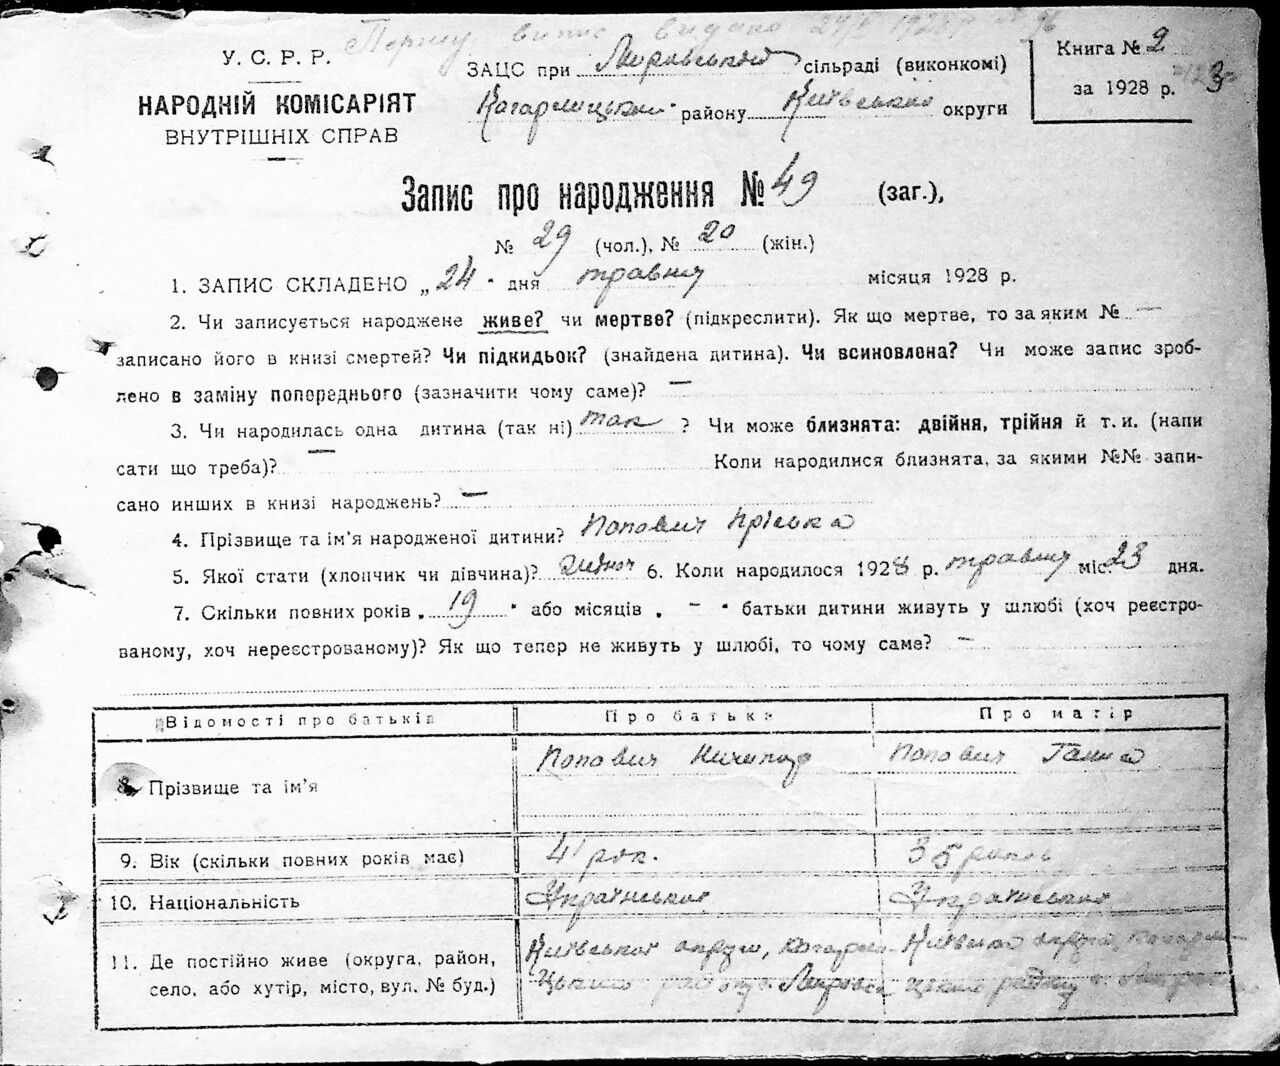 Першу випис видано 24/V 1928 р. № 96
У. С. Р. Р.
НАРОДНІЙ КОМІСАРІЯТ
ВНУТРІШНІХ СПРАВ
ЗАЦС при Мировській сільраді (виконкомі)
Кагарлицького району Київської округи
Книга № 2
за 1928 р.
Запис про народження № 49 (заг.),
№ 29 (чол.), № 20 (жін.)
1. ЗАПИС СКЛАДЕНО „24" дня травня місяця 1928 р.
2. Чи записується народжене живе? чи мертве? (підкреслити). Як що мертве, то за яким № —
записано його в книзі смертей? Чи підкидьок? (знайдена дитина). Чи всиновлена? Чи може запис зроб-
лено в заміну попореднього (зазначити чому саме)? —
3. Чи народилась одна дитина (так ні) так ? Чи може близнята: двійня, трійня й т. и. (напи
сати що треба)? — Коли народилися близнята, за якими №№ запи-
сано инших в книзі народжень? —
4. Прізвище та ім'я народженої дитини? Попович Пріська
5. Якої стати (хлопчик чи дівчина)? 6. Коли народилося 1928 р. травня міс. 23 дня.
7. Скільки повних років „19" або місяців „ — " батьки дитини живуть у шлюбі (хоч реєстро-
ваному, хоч нереєстрованому)? Як що тепер не живуть у шлюбі, то чому саме? —
Відомості про батьків Про батька Про матір
8. Прізвище та ім'я Попович Ничипор Попович Ганна
9. Вік (скільки повних років має) 41 рок. 35 років
10. Національність Українська Українська
11. Де постійно живе (округа, район, Київської округи, Кагарли- Київсько округи, Кагарли-
село, або хутір, місто, вул. № буд.) цького району с. Мировка цького району с.